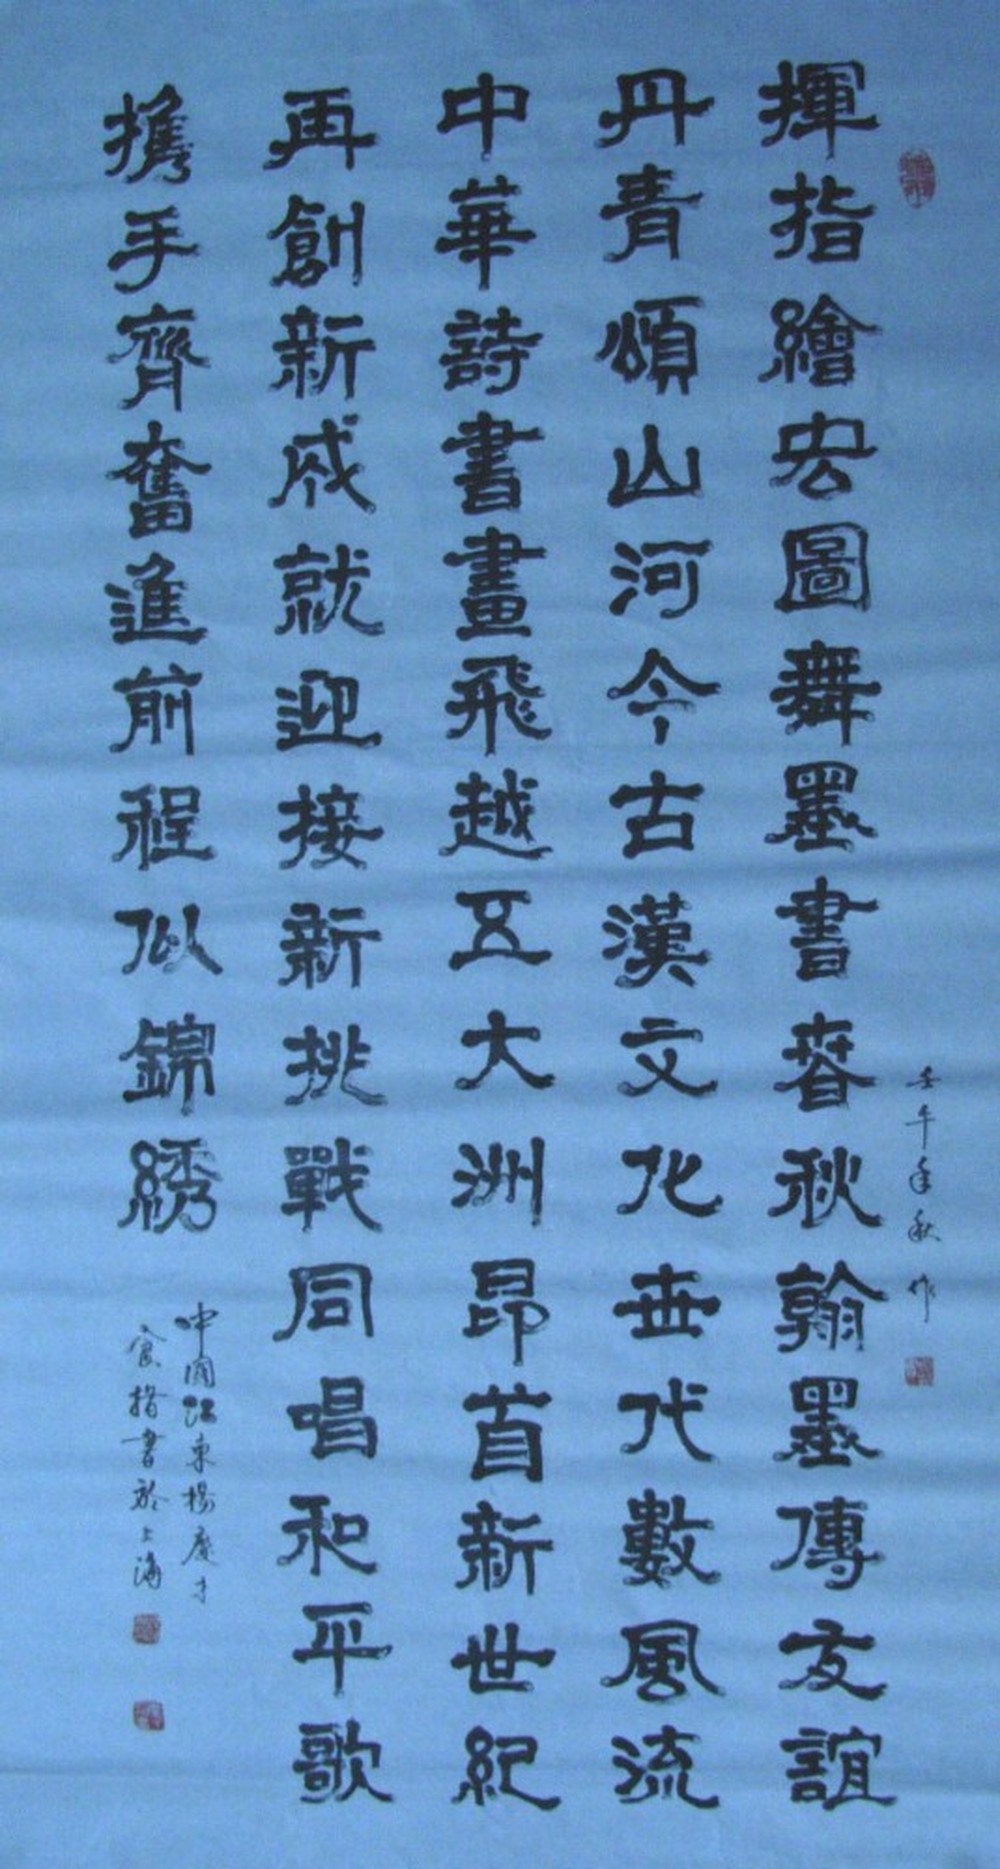 揮指繪宏圖舞墨書春秋翰墨傳友誼
丹青頌山河今古漢文化世代數風流
中華詩書畫飛越五大洲昂首新世紀
再創新成就迎接新挑戰同唱和平歌
携手齊奮進前程似錦綉
壬午年秋作
中國江東楊慶才
食指書於上海